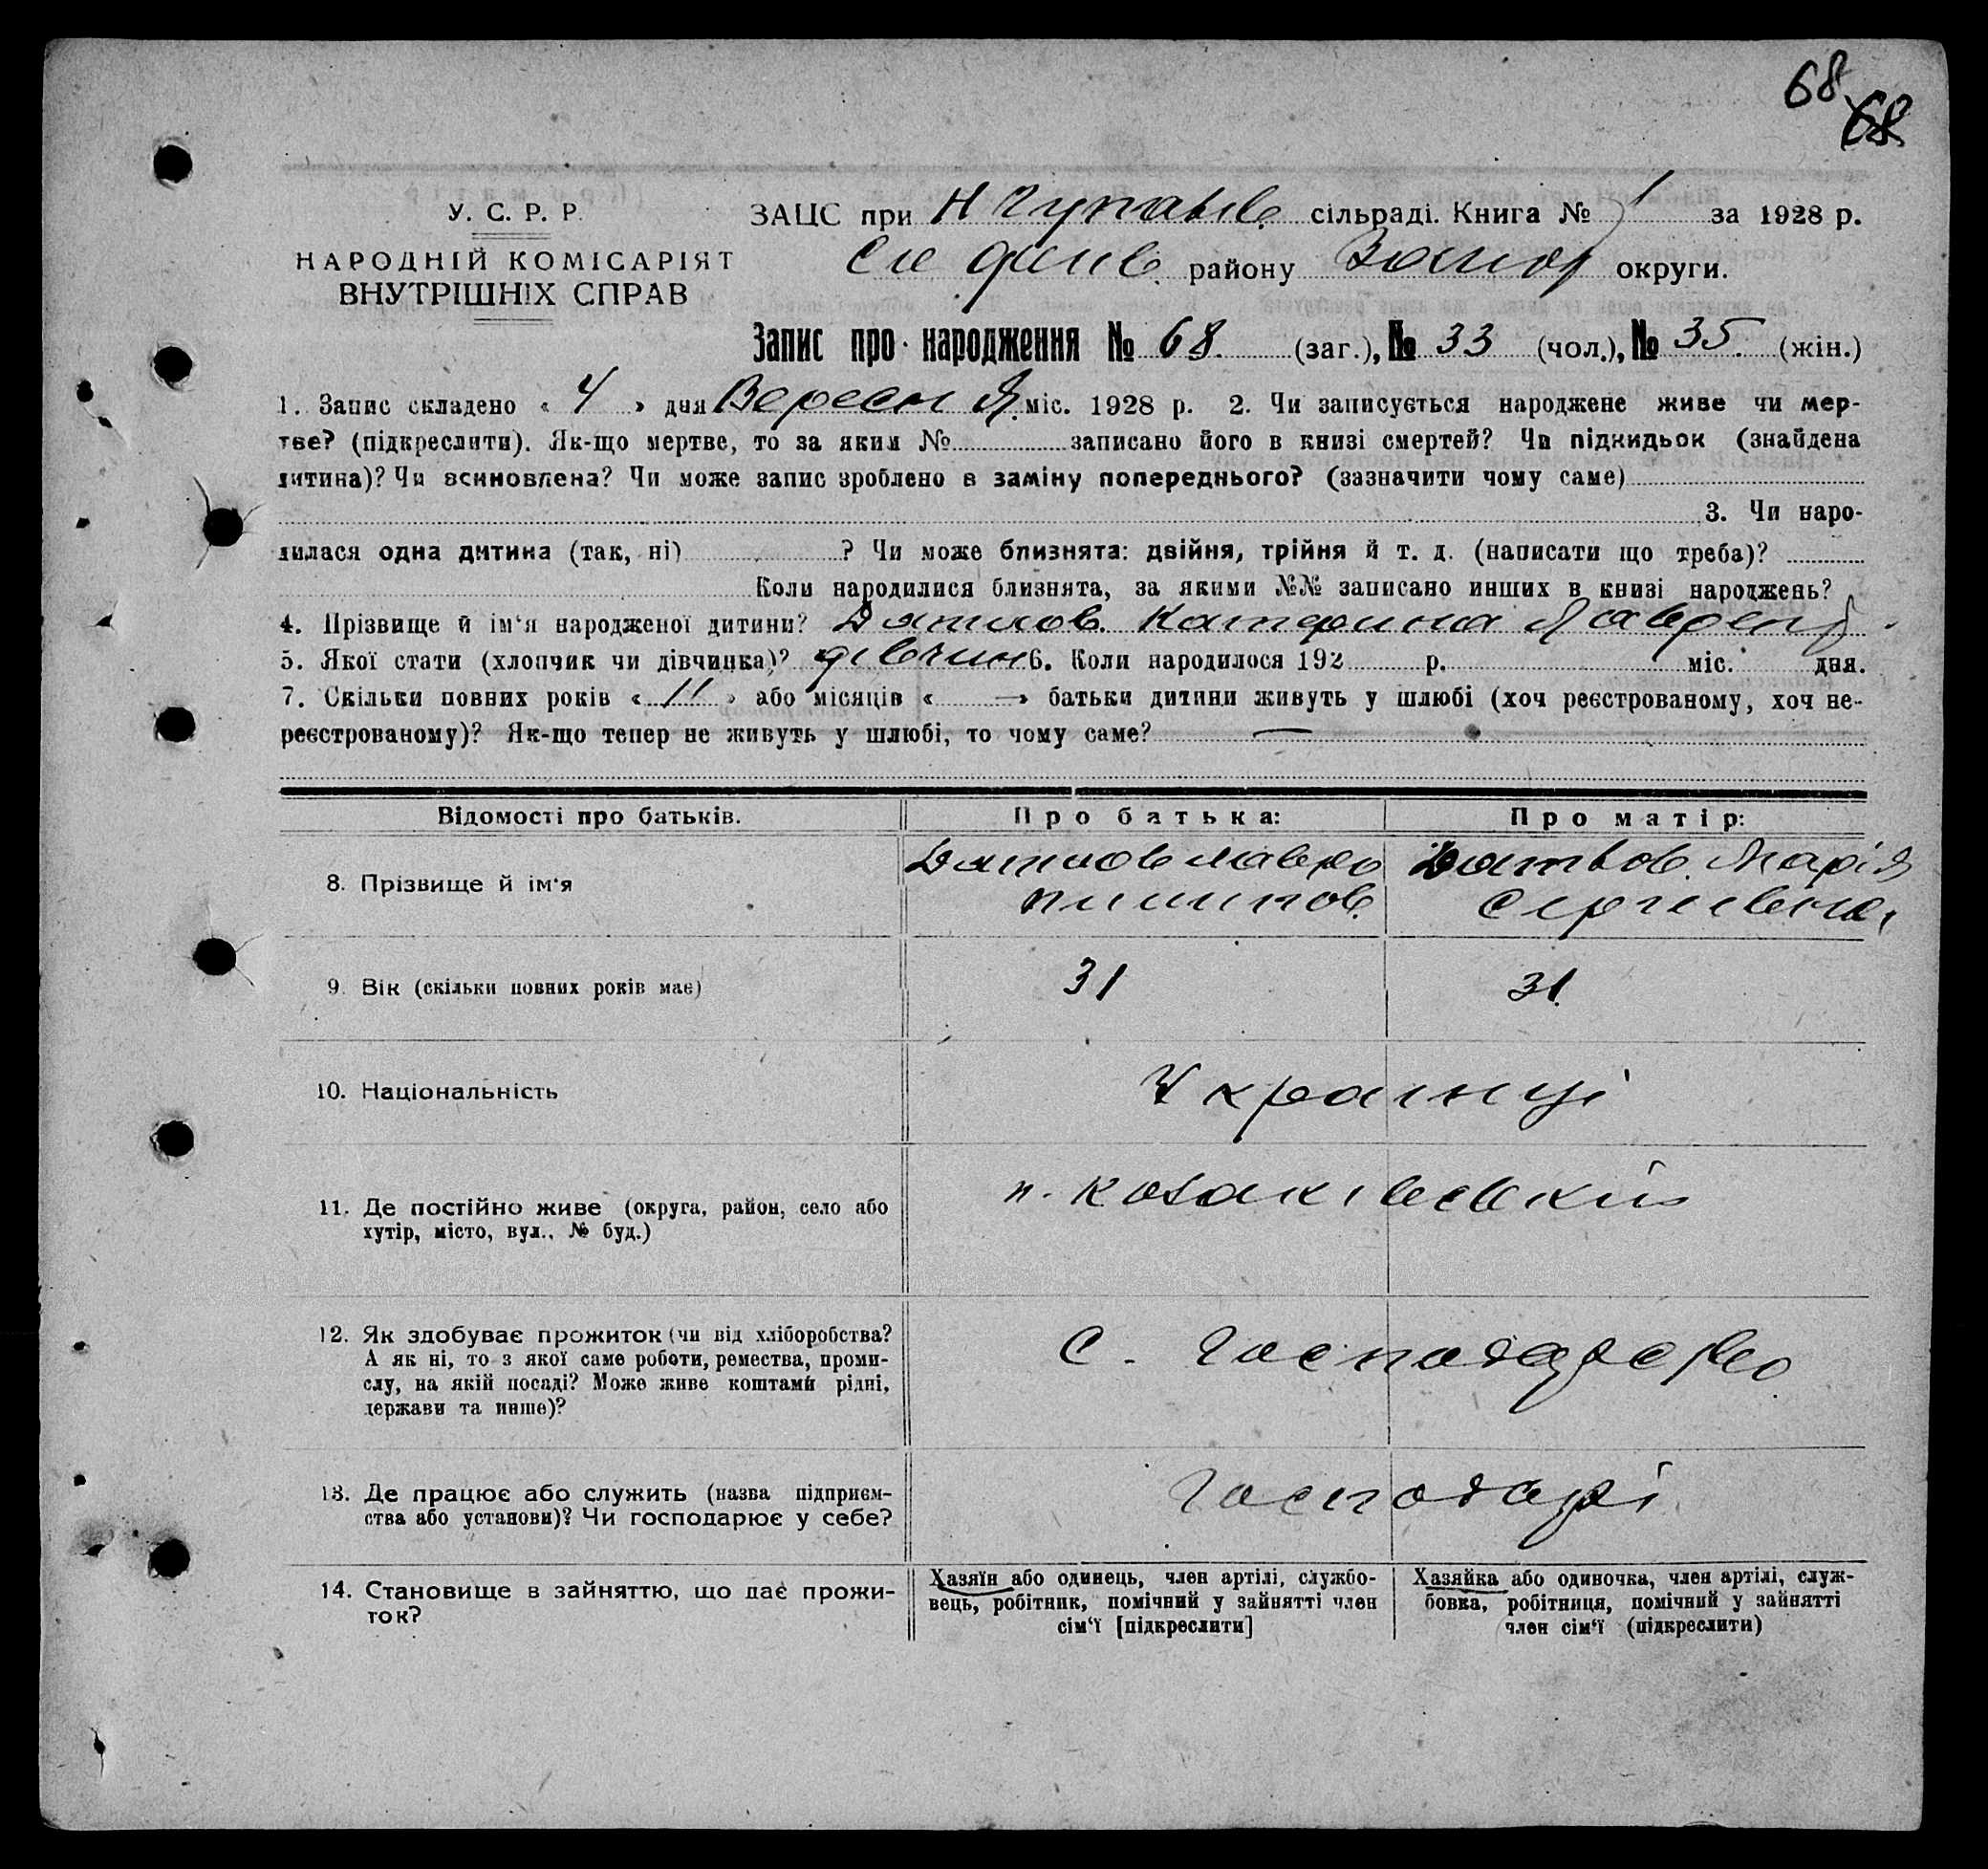 68
68
У. С. Р. Р.
НАРОДНІЙ КОМІСАРІЯТ
ВНУТРІШНІХ СПРАВ
ЗАЦС при сільраді. Книга № 1 за 1928 р.
району округи.
Запис про народження № 68. (заг.), № 33 (чол.), № 35. (жін.)
1. Запис складено « 4 » дня Вересня міс. 1928 р. 2. Чи записується народжене живе чи мер-
тве? (підкреслити). Як-що мертве, то за яким № записано його в книзі смертей? Чи підкидьок (знайдена
дитина)? Чи всиновлена? Чи може запис зроблено в заміну попереднього? (зазначити чому саме)
3. Чи наро-
дилася одна дитина (так, ні) ? Чи може близнята: двійня, трійня й т. д. (написати що треба)?
Коли народилися близнята, за якими №№ записано инших в книзі народжень?
4. Прізвище й ім'я народженої дитини? Катерина
5. Якої стати (хлопчик чи дівчинка)? дівчин 6. Коли народилося 192 р. міс. дня.
7. Скільки повних років « 11 » або місяців « — » батьки дитини живуть у шлюбі (хоч реєстрованому, хоч не-
реєстрованому)? Як-що тепер не живуть у шлюбі, то чому саме? —
Відомості про батьків. Про батька: Про матір:
8. Прізвище й ім'я Марія
9. Вік (скільки повних років має) 31 31
10. Національність Українці
11. Де постійно живе (округа, район, село або
хутір, місто, вул., № буд.)
12. Як здобуває прожиток (чи від хліборобства?
А як ні, то з якої саме роботи, ремества, проми-
слу, на якій посаді? Може живе коштами рідні,
держави та инше)?
С. Господарство
13. Де працює або служить (назва підприєм-
ства або установи)? Чи господарює у себе?
Господарі
14. Становище в зайняттю, що дає прожи-
ток?
Хазяїн або одинець, член артілі, службо-
вець, робітник, помічний у зайнятті член
сім'ї [підкреслити]
Хазяйка або одиночка, член артілі, служ-
бовка, робітниця, помічний у зайнятті
член сім'ї (підкреслити)